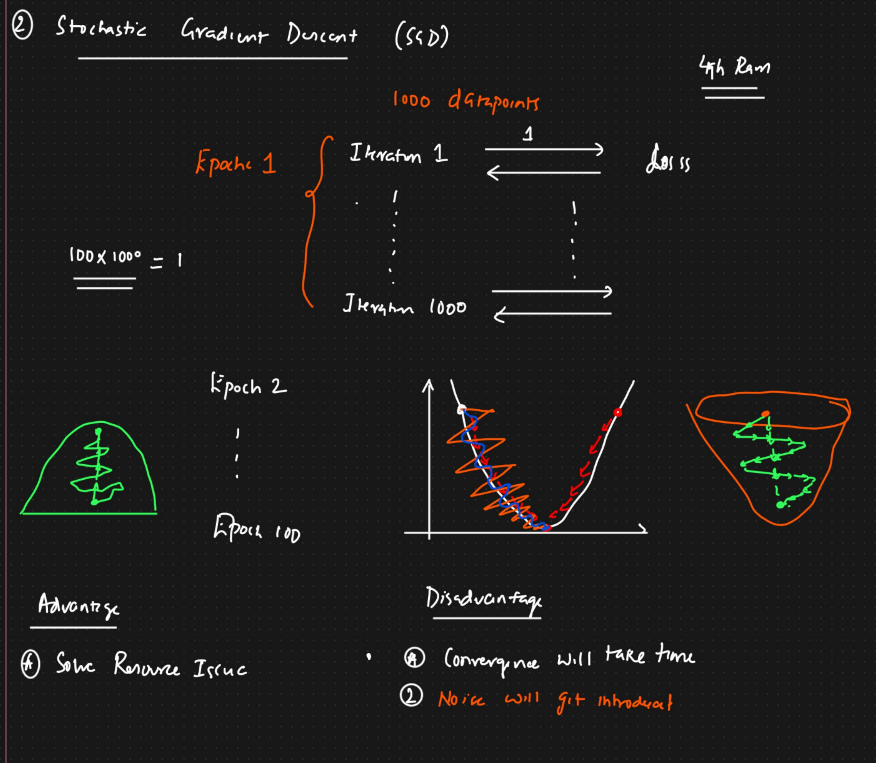 ② Stochastic Gradient Descent (SGD)
4gb Ram
1000 datapoints
Epoche 1
Iteration 1
1
Loss
100 x 1000 = 1
Iteration 1000
Epoch 2
Epoch 100
Advantage
Disadvantage
① Solve Resource Issue
① Convergence will take time
② Noise will get introduced